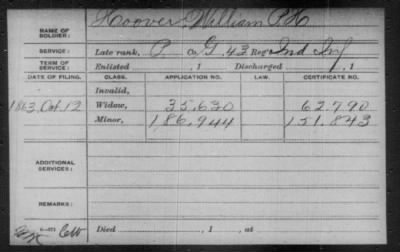 NAME OF SOLDIER: Hoover, William P. H.
SERVICE: Late rank, P. Co. G, 43 Reg't Ind Inf
TERM OF SERVICE: Enlisted , 1 Discharged , 1
DATE OF FILING. CLASS. APPLICATION NO. LAW. CERTIFICATE NO.
Invalid,
1863, Oct. 12 Widow, 35,630 62,790
Minor, 186,944 151,843
ADDITIONAL SERVICES:
REMARKS:
Died , 1 , at